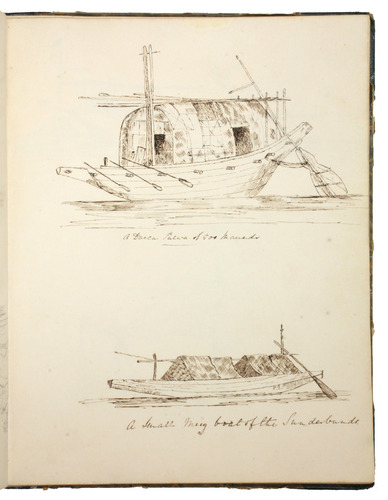 A Dacca Pulwa of 500 Maunds
A Small Mug boat of the Sunderbunds